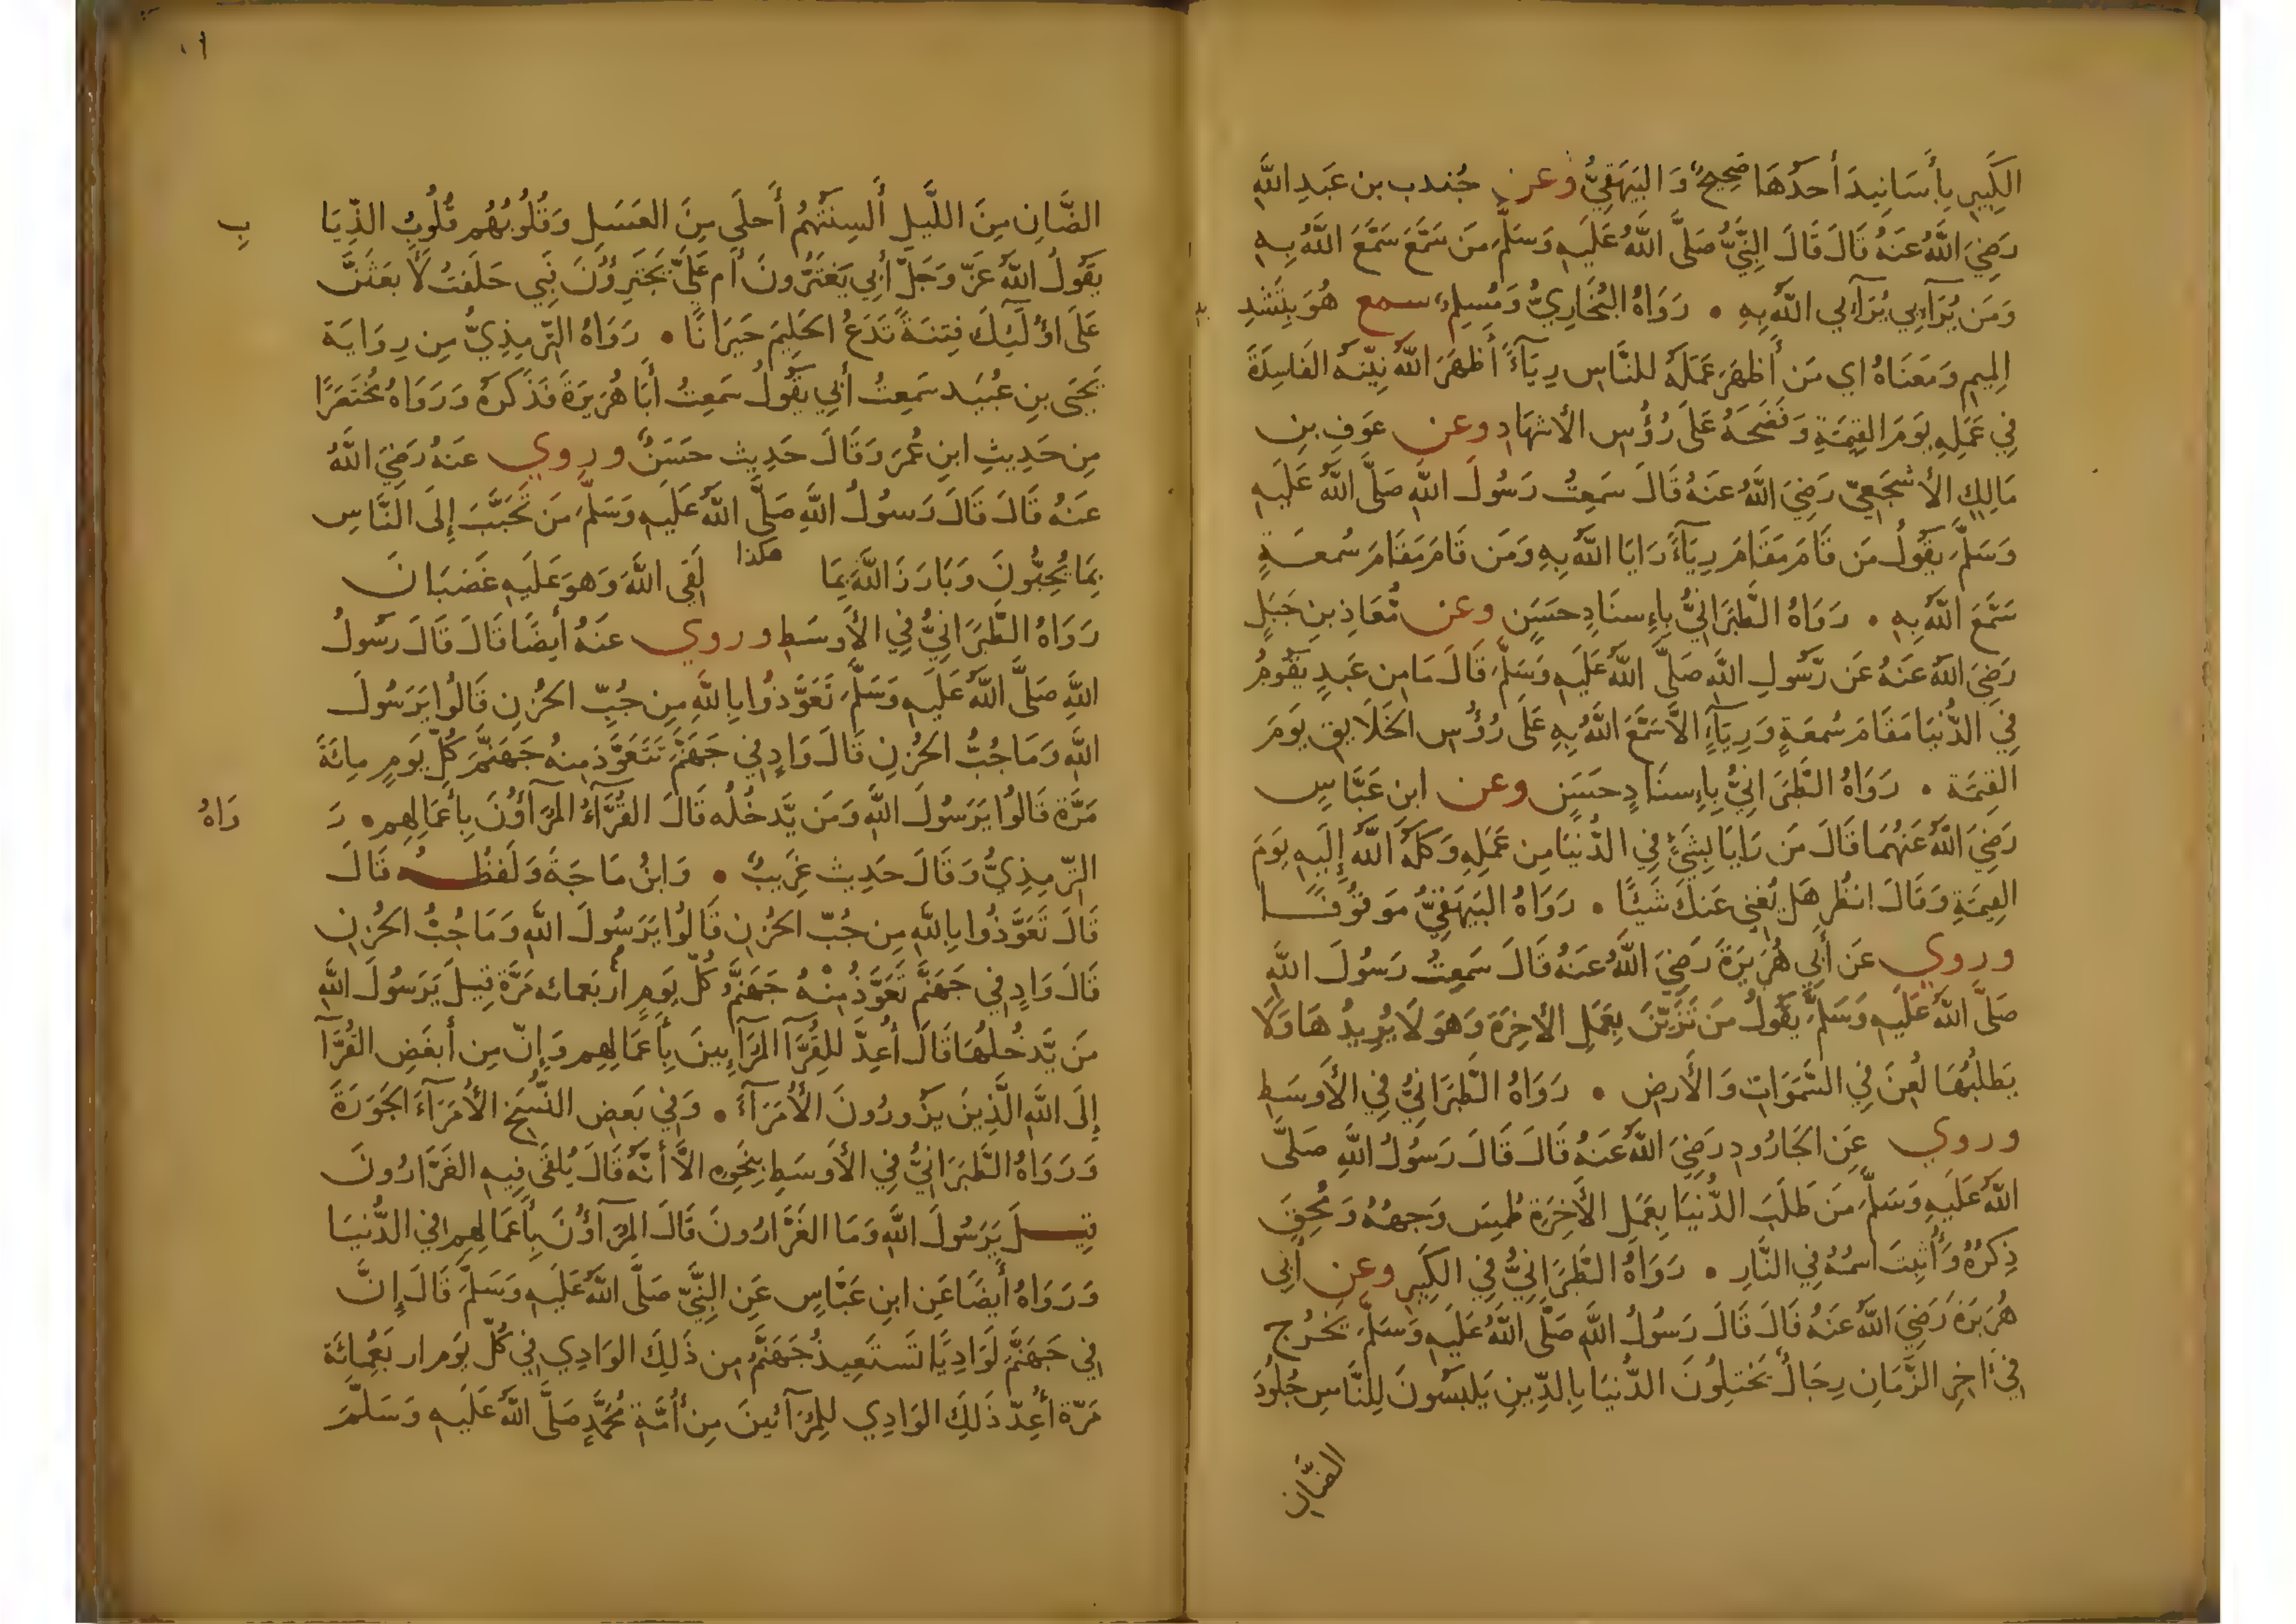 الكَبِيرِ بِأَسَانِيدَ أَحَدُهَا صَحِيحٌ وَالبَيهَقِيُّ وعن جُندب بن عَبدِ اللَّهِ
رَضِيَ اللَّهُ عَنهُ قَالَ قَالَ النَّبِيُّ صَلَّى اللَّهُ عَلَيهِ وَسَلَّمَ مَن سَمَّعَ سَمَّعَ اللَّهُ بِهِ
وَمَن يُرَآءِي يُرَآءِي اللَّهُ بِهِ . رَوَاهُ البُخَارِيُّ وَمُسلِمٌ سمع هُوَ بِتَشدِيد
المِيمِ وَمَعنَاهُ اي مَن أَظهَرَ عَمَلَهُ للنَّاسِ رِيَآءً أَظهَرَ اللَّهُ نِيَّتَهُ الفَاسِدَةَ
فِي عَمَلِهِ يَومَ القِيمَةِ وَفَضَحَهُ عَلَى رُؤُسِ الأَشهَادِ وعن عَوفِ بنِ
مَالِكِ الأَشجَعِيّ رَضِيَ اللَّهُ عَنهُ قَالَ سَمِعتُ رَسُولَ اللَّهِ صَلَّى اللَّهُ عَلَيهِ
وَسَلَّمَ يَقُولُ مَن قَامَ مَقَامَ رِيَآءً رَايَا اللَّهُ بِهِ وَمَن قَامَ مَقَامَ سُمعَةٍ
سَمَّعَ اللَّهُ بِهِ . رَوَاهُ الطَّبَرَانِيُّ بِإِسنَادٍ حَسَنٍ وعن مُعَاذِ بنِ جَبَلٍ
رَضِيَ اللَّهُ عَنهُ عَن رَّسُولِ اللَّهِ صَلَّى اللَّهُ عَلَيهِ وَسَلَّمَ قَالَ مَا مِن عَبدٍ يَقُومُ
فِي الدُّنيَا مَقَامَ سُمعَةٍ وَرِيَآءٍ الاَّ سَمَّعَ اللَّهُ بِهِ عَلَى رُؤُسِ الخَلَايِقِ يَومَ
القِيمَة . رَوَاهُ الطَّبَرَانِيُّ بِإِسنَادٍ حَسَنٍ وعن ابنِ عَبَّاسٍ
رَضِيَ اللَّهُ عَنهُمَا قَالَ مَن رَايَا بِشَيءٍ فِي الدُّنيَا مِن عَمَلِهِ وَكَلَهُ اللَّهُ إِلَيهِ يَومَ
القِيمَةِ وَقَالَ انظُر هَل يُغنِي عَنكَ شَيئًا . رَوَاهُ البَيهَقِيُّ مَوقُوفًا
وروي عَن أَبِي هُرَيرَةَ رَضِيَ اللَّهُ عَنهُ قَالَ سَمِعتُ رَسُولَ اللَّهِ
صَلَّى اللَّهُ عَلَيهِ وَسَلَّمَ يَقُولُ مَن تَزَيَّنَ بِعَمَلِ الأخِرَةِ وَهوَ لَا يُرِيدُهَا وَلَا
يَطلُبُهَا لُعِنَ فِي السَّمَوَاتِ وَالأَرضِ . رَوَاهُ الطَّبَرَانِيُّ فِي الأَوسَطِ
وروي عَنِ الجَارُودِ رَضِيَ اللَّهُ عَنهُ قَالَ قَالَ رَسُولُ اللَّهِ صَلَّى
اللَّهُ عَلَيهِ وَسَلَّمَ مَن طَلَبَ الدُّنيَا بِعَمَلِ الأَخِرَةِ طُمِسَ وَجهُهُ وَمُحِقَ
ذِكرُهُ وَأُثبِتَ اسمُهُ فِي النَّارِ . رَوَاهُ الطَّبَرَانِيُّ فِي الكَبِيرِ وعن أَبِي
هُرَيرَةَ رَضِيَ اللَّهُ عَنهُ قَالَ قَالَ رَسُولُ اللَّهِ صَلَّى اللَّهُ عَلَيهِ وَسَلَّمَ يَخرُج
فِي اخِرِ الزَّمَانِ رِجَالٌ يَختِلُونَ الدُّنيَا بِالدِّينِ يَلبَسُونَ لِلنَّاسِ جُلُودَ
الضَّانِ
١١
الضَّانِ مِنَ اللَّيلِ أَلسِنَتُهُم أَحلَى مِنَ العَسَلِ وَقُلُوبُهُم قُلُوبُ الذِّيَا بِ
يَقُولُ اللَّهُ عَزّ وَجَلَّ أَبِي يَغتَرُّونَ أَم عَلَيَّ يَجتَرِؤُنَ فَبِي حَلَفتُ لَأَبعَثَنَّ
عَلَى اوُلَئِكَ فِتنَةً تَدَعُ الحَلِيمَ حَيرَانًا . رَوَاهُ التِّرمِذِيُّ مِن رِوَايَة
يَحيَى بنِ عُبَيد سَمِعتُ أَبِي يَقُولُ سَمِعتُ أَبَا هُرَيرَةَ فَذَكَرَهُ وَرَوَاهُ مُختَصَرًا
مِن حَدِيثِ ابنِ عُمَرَ وَقَالَ حَدِيث حَسَنٌ وروي عَنهُ رَضِيَ اللَّهُ
عَنهُ قَالَ قَالَ رَسُولُ اللَّهِ صَلَّى اللَّهُ عَلَيهِ وَسَلَّمَ مَن تَحَبَّبَ إِلَى النَّاسِ
بِمَا يُحِبُّونَ وَبَارَزَ اللَّهَ بِمَا هكذا لَقِي اللَّهَ وَهوَ عَلَيهِ غَضبَانَ
رَوَاهُ الطَّبَرَانِيُّ فِي الأَوسَطِ وروي عَنهُ أَيضًا قَالَ قَالَ رَسُولُ
اللَّهِ صَلَّى اللَّهُ عَلَيهِ وَسَلَّمَ تَعَوَّذُوا بِاللَّهِ مِن جُبِّ الحُزنِ قَالُوا يَرَسُولَ
اللَّهِ وَمَا جُبُّ الحُزنِ قَالَ وَادٍ فِي جَهَنَّمَ تَتَعَوَّذ مِنهُ جَهَنَّمُ كُلَّ يَومٍ مِائَةَ
مَرَّة قَالُوا يَرَسُولَ اللَّهِ وَمَن يَّدخُلُه قَالَ القُرَّآءُ المُرَآؤُنَ بِأَعمَالِهِم . رَ وَاهُ
التِّرمِذِيُّ وَقَالَ حَدِيث غَرِيبٌ . وَابنُ مَاجَةَ وَلَفظُهُ قَالَ
قَالَ تَعَوَّذُوا بِاللَّهِ مِن جُبّ الحُزنِ قَالُوا يَرَسُولَ اللَّهِ وَمَا جُبُّ الحُزنِ
قَالَ وَادٍ فِي جَهَنَّمَ تَعَوَّذُ مِنْهُ جَهَنَّمُ كُلَّ يَومٍ أربَعمائه مَرَّة قِيلَ يَرَسُولَ اللَّهِ
مَن يَّدخُلُهَا قَالَ أُعِدَّ لِلقُرَّآ المُرَآءِينَ بِأَعمَالِهِم وَإِنّ مِن أَبغَضِ القُرَّآ
إِلَى اللَّهِ الَّذِينَ يَزُورُونَ الأُمَرَآءَ . وَفِي بَعضِ النُّسَخِ الأُمَرَآءَ الجَوَرَةَ
وَرَوَاهُ الطَّبَرَانِيُّ فِي الأَوسَطِ بِنَحوِه الاَّ أَنَّهُ قَالَ يُلقَى فِيهِ الغَرَّارُونَ
قِيلَ يَرَسُولَ اللَّهِ وَمَا الغَرَّارُونَ قَالَ المُرَآؤُنَ بِأَعمَالِهِم فِي الدُّنيَا
وَرَوَاهُ أَيضًا عَنِ ابنِ عَبَّاسٍ عَنِ النَّبِيّ صَلَّى اللَّهُ عَلَيهِ وَسَلَّمَ قَالَ إِنَّ
فِي جَهَنَّمَ لَوَادِيًا تَستَعِيذُ جَهَنَّمُ مِن ذَلِكَ الوَادِي فِي كُلِّ يَوم اربَعُمِائَة
مَرّة أُعِدّ ذَلِكَ الوَادِي لِلمُرَآئينَ مِن أُمَّةِ مُحَمَّدٍ صَلَّى اللَّهُ عَلَيهِ وَسَلَّمَ